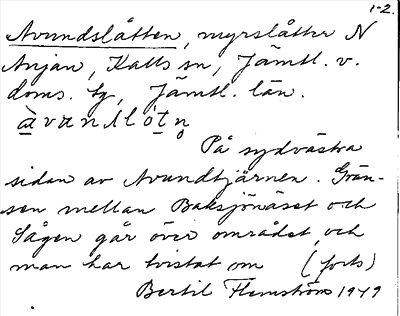 1-2.
Avundslåtten, myrslåtter N
Anjan, Kalls sn, Jämtl. v.
doms. tg, Jämtl. län.
På sydvästra
sidan av Avundtjärnen. Grän-
sen mellan Baksjönäset och
Sågen går över området, och
man har tvistat om (forts)
Bertil Flemström 1949